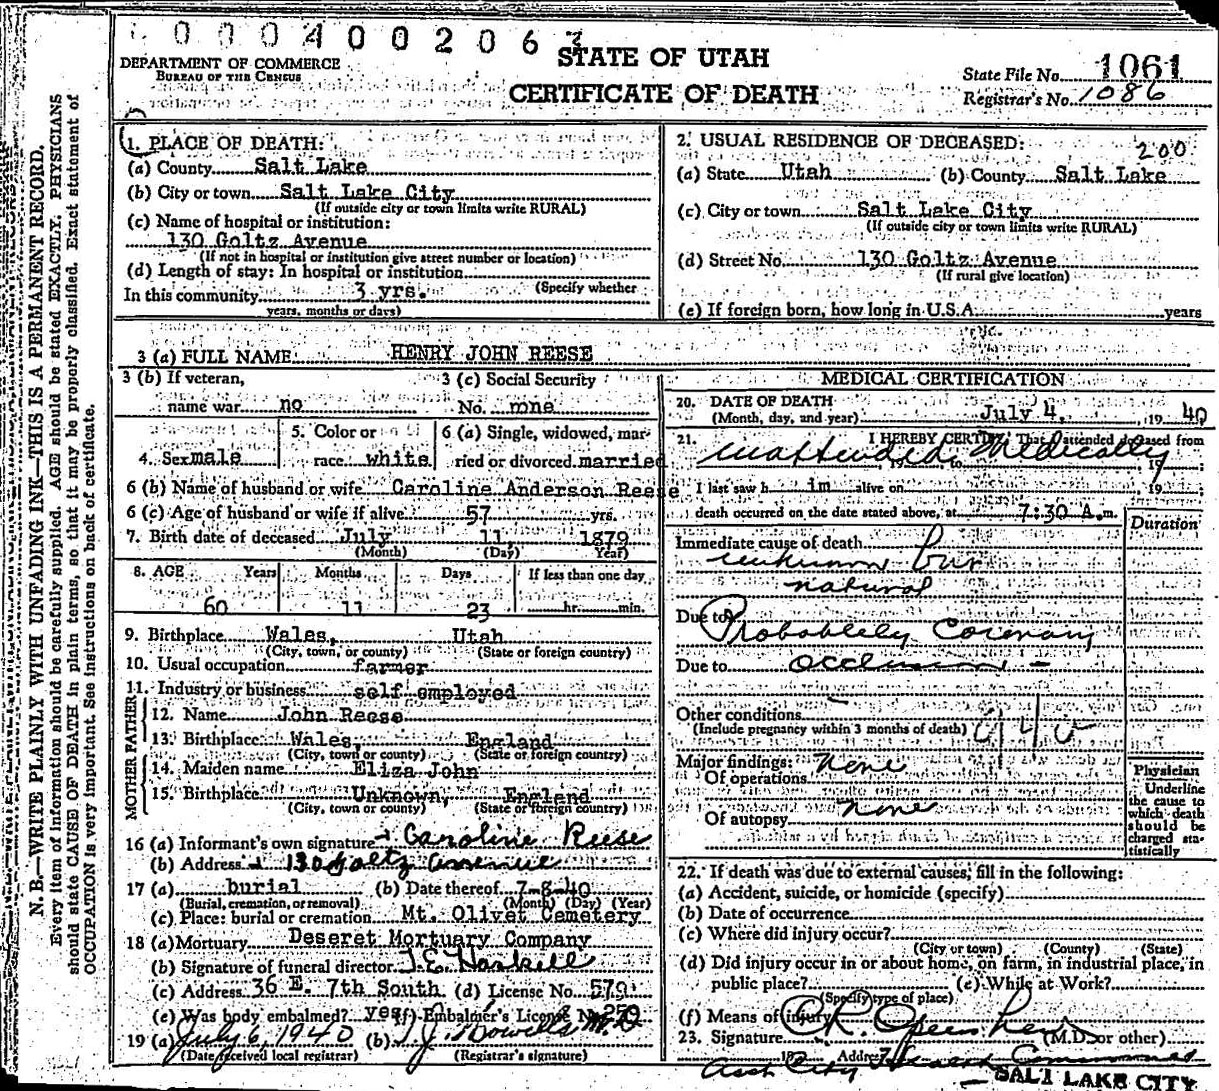 0004002063
STATE OF UTAH
CERTIFICATE OF DEATH
DEPARTMENT OF COMMERCE
BUREAU OF THE CENSUS
State File No. 1061
Registrar's No. 1086
N. B.—WRITE PLAINLY WITH UNFADING INK—THIS IS A PERMANENT RECORD.
Every item of information should be carefully supplied. AGE should be stated EXACTLY. PHYSICIANS
should state CAUSE OF DEATH in plain terms, so that it may be properly classified. Exact statement of
OCCUPATION is very important. See instructions on back of certificate.
1. PLACE OF DEATH:
(a) County Salt Lake
(b) City or town Salt Lake City
(If outside city or town limits write RURAL)
(c) Name of hospital or institution:
130 Goltz Avenue
(If not in hospital or institution give street number or location)
(d) Length of stay: In hospital or institution
(Specify whether
In this community 3 yrs.
years, months or days)
2. USUAL RESIDENCE OF DECEASED:
200
(a) State Utah (b) County Salt Lake
(c) City or town Salt Lake City
(If outside city or town limits write RURAL)
(d) Street No. 130 Goltz Avenue
(If rural give location)
(e) If foreign born, how long in U.S.A. years
3 (a) FULL NAME HENRY JOHN REESE
3 (b) If veteran,
name war no
3 (c) Social Security
No. none
4. Sex male
5. Color or
race white
6 (a) Single, widowed, mar-
ried or divorced married
6 (b) Name of husband or wife Caroline Anderson Reese
6 (c) Age of husband or wife if alive 57 yrs.
7. Birth date of deceased July 11, 1879
(Month) (Day) Year)
8. AGE Years Months Days If less than one day
60 11 23 hr. min.
9. Birthplace Wales, Utah
(City, town, or county) (State or foreign country)
10. Usual occupation farmer
11. Industry or business self employed
FATHER
12. Name John Reese
13. Birthplace Wales, England
(City, town or county) (State or foreign country)
MOTHER
14. Maiden name Eliza John
15. Birthplace Unknown, England
(City, town or county) (State or foreign country)
16 (a) Informant's own signature Caroline Reese
(b) Address 130 Goltz Avenue
17 (a) burial (b) Date thereof 7-8-40
(Burial, cremation, or removal) (Month) (Day) (Year)
(c) Place: burial or cremation Mt. Olivet Cemetery
18 (a) Mortuary Deseret Mortuary Company
(b) Signature of funeral director
(c) Address 36 E. 7th South (d) License No. 579
(e) Was body embalmed? yes (f) Embalmer's License No. 250
19 (a) July 6, 1940 (b)
(Date received local registrar) (Registrar's signature)
MEDICAL CERTIFICATION
20. DATE OF DEATH
(Month, day, and year) July 4, 19 40
21. I HEREBY CERTIFY, That I attended deceased from
unattended Medically
19 to 19
I last saw him alive on 19
death occurred on the date stated above, at 7:30 A.m.
Duration
Immediate cause of death
unknown but
natural
Due to Probablely Coronary
Due to occlusion -
Other conditions
(Include pregnancy within 3 months of death)
Major findings:
Of operations none
Of autopsy none
Physician
Underline
the cause to
which death
should be
charged sta-
tistically
22. If death was due to external causes, fill in the following:
(a) Accident, suicide, or homicide (specify)
(b) Date of occurrence
(c) Where did injury occur?
(City or town) (County) (State)
(d) Did injury occur in or about home, on farm, in industrial place, in
public place? (e) While at Work?
(Specify type of place)
(f) Means of injury
23. Signature (M.D. or other)
Address
SALT LAKE CITY